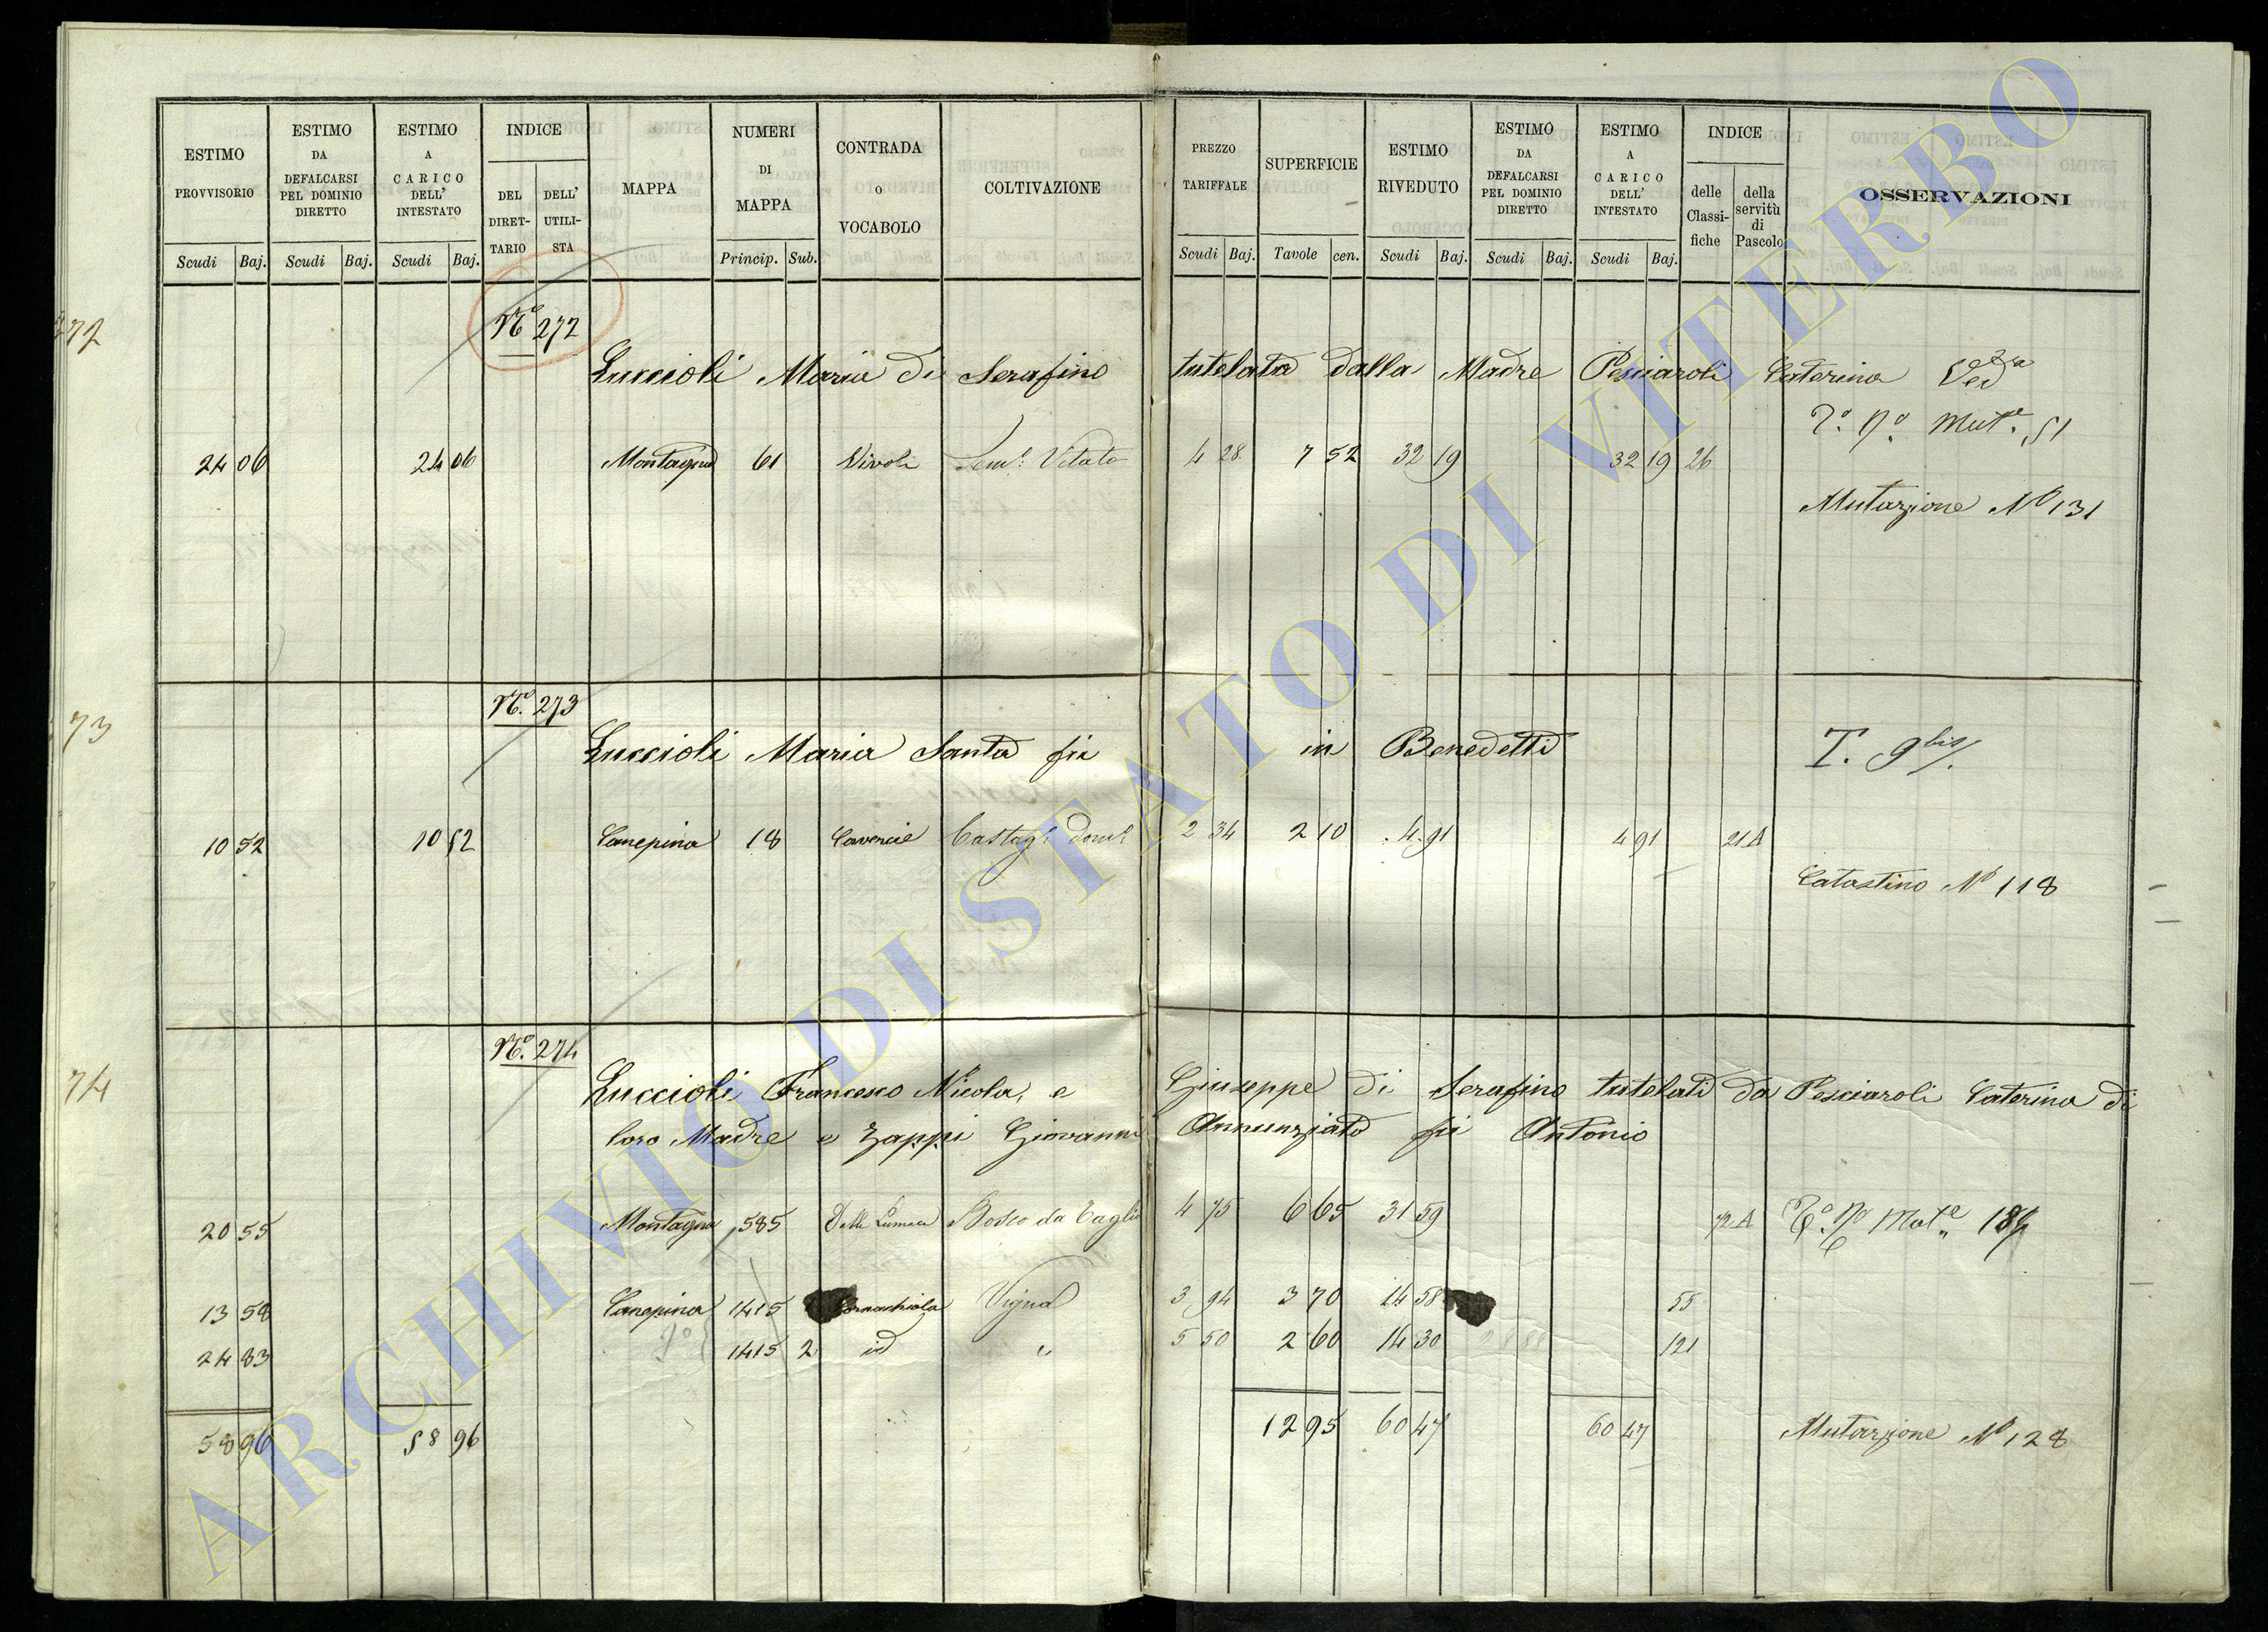 ESTIMO PROVVISORIO
ESTIMO DA DEFALCARSI PEL DOMINIO DIRETTO
ESTIMO A CARICO DELL' INTESTATO
INDICE
DEL DIRET-TARIO
DELL' UTILI-STA
MAPPA
NUMERI DI MAPPA
CONTRADA O VOCABOLO
COLTIVAZIONE
PREZZO TARIFFALE
SUPERFICIE
ESTIMO RIVEDUTO
ESTIMO DA DEFALCARSI PEL DOMINIO DIRETTO
ESTIMO A CARICO DELL' INTESTATO
INDICE
delle Classi-fiche
della servitù di Pascolo
OSSERVAZIONI
Scudi Baj. Scudi Baj. Scudi Baj. Princip. Sub. Scudi Baj. Tavole cen. Scudi Baj. Scudi Baj. Scudi Baj.
272
N.º 272
Luccioli Maria di Serafino tutelata dalla Madre Pesciaroli Caterina Ved.ª
Mut.e 51
24 06 24 06 Montagna 61 Vivoli Sem.º Vitato 4 28 7 52 32 19 32 19 26
Mutazione Nº 131
73
N.º 273
Luccioli Maria Santa fu in Benedetti T. 9 bis
10 52 10 52 Canepina 18 Cavercie Castag.º dom.º 2 34 2 10 4 91 4 91 21 A
Catastino Nº 118
74
N.º 274
Luccioli Francesco Nicola, e Giuseppe di Serafino tutelati da Pesciaroli Caterina di
loro Madre e Zappi Giovanni Annunziato fu Antonio
20 55 Montagna 585 Delle Lumaca Bosco da Taglio 4 75 6 65 31 59 72 A
13 58 Canepina 1415 Cornachiola Vigna 3 94 3 70 14 58 55
24 83 1415 2 id " 5 50 2 60 14 30 121
58 96 58 96 12 95 60 47 60 47 Mutazione Nº 128
ARCHIVIO DI STATO DI VITERBO